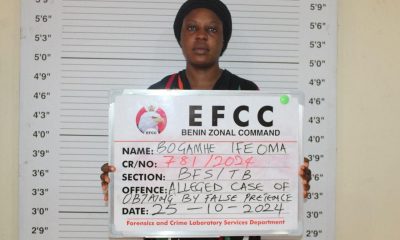 EFCC
BENIN ZONAL COMMAND
EFCC
NAME: BOGAMHE IFEOMA
CR/NO: 781/2024
SECTION: BFS/TB
OFFENCE: ALLEGED CASE OF
OBTAING BY FALSE PRETENCE
DATE: 25-10-2024
Forensics and Crime Laboratory Services Department
5'9
5'6
5'3
5'0
4'9
4'6
4'3
3'9
3'6
5'9
5'6
5'3
5'0
4'9
4'6
4'3
4'0
3'9
3'6